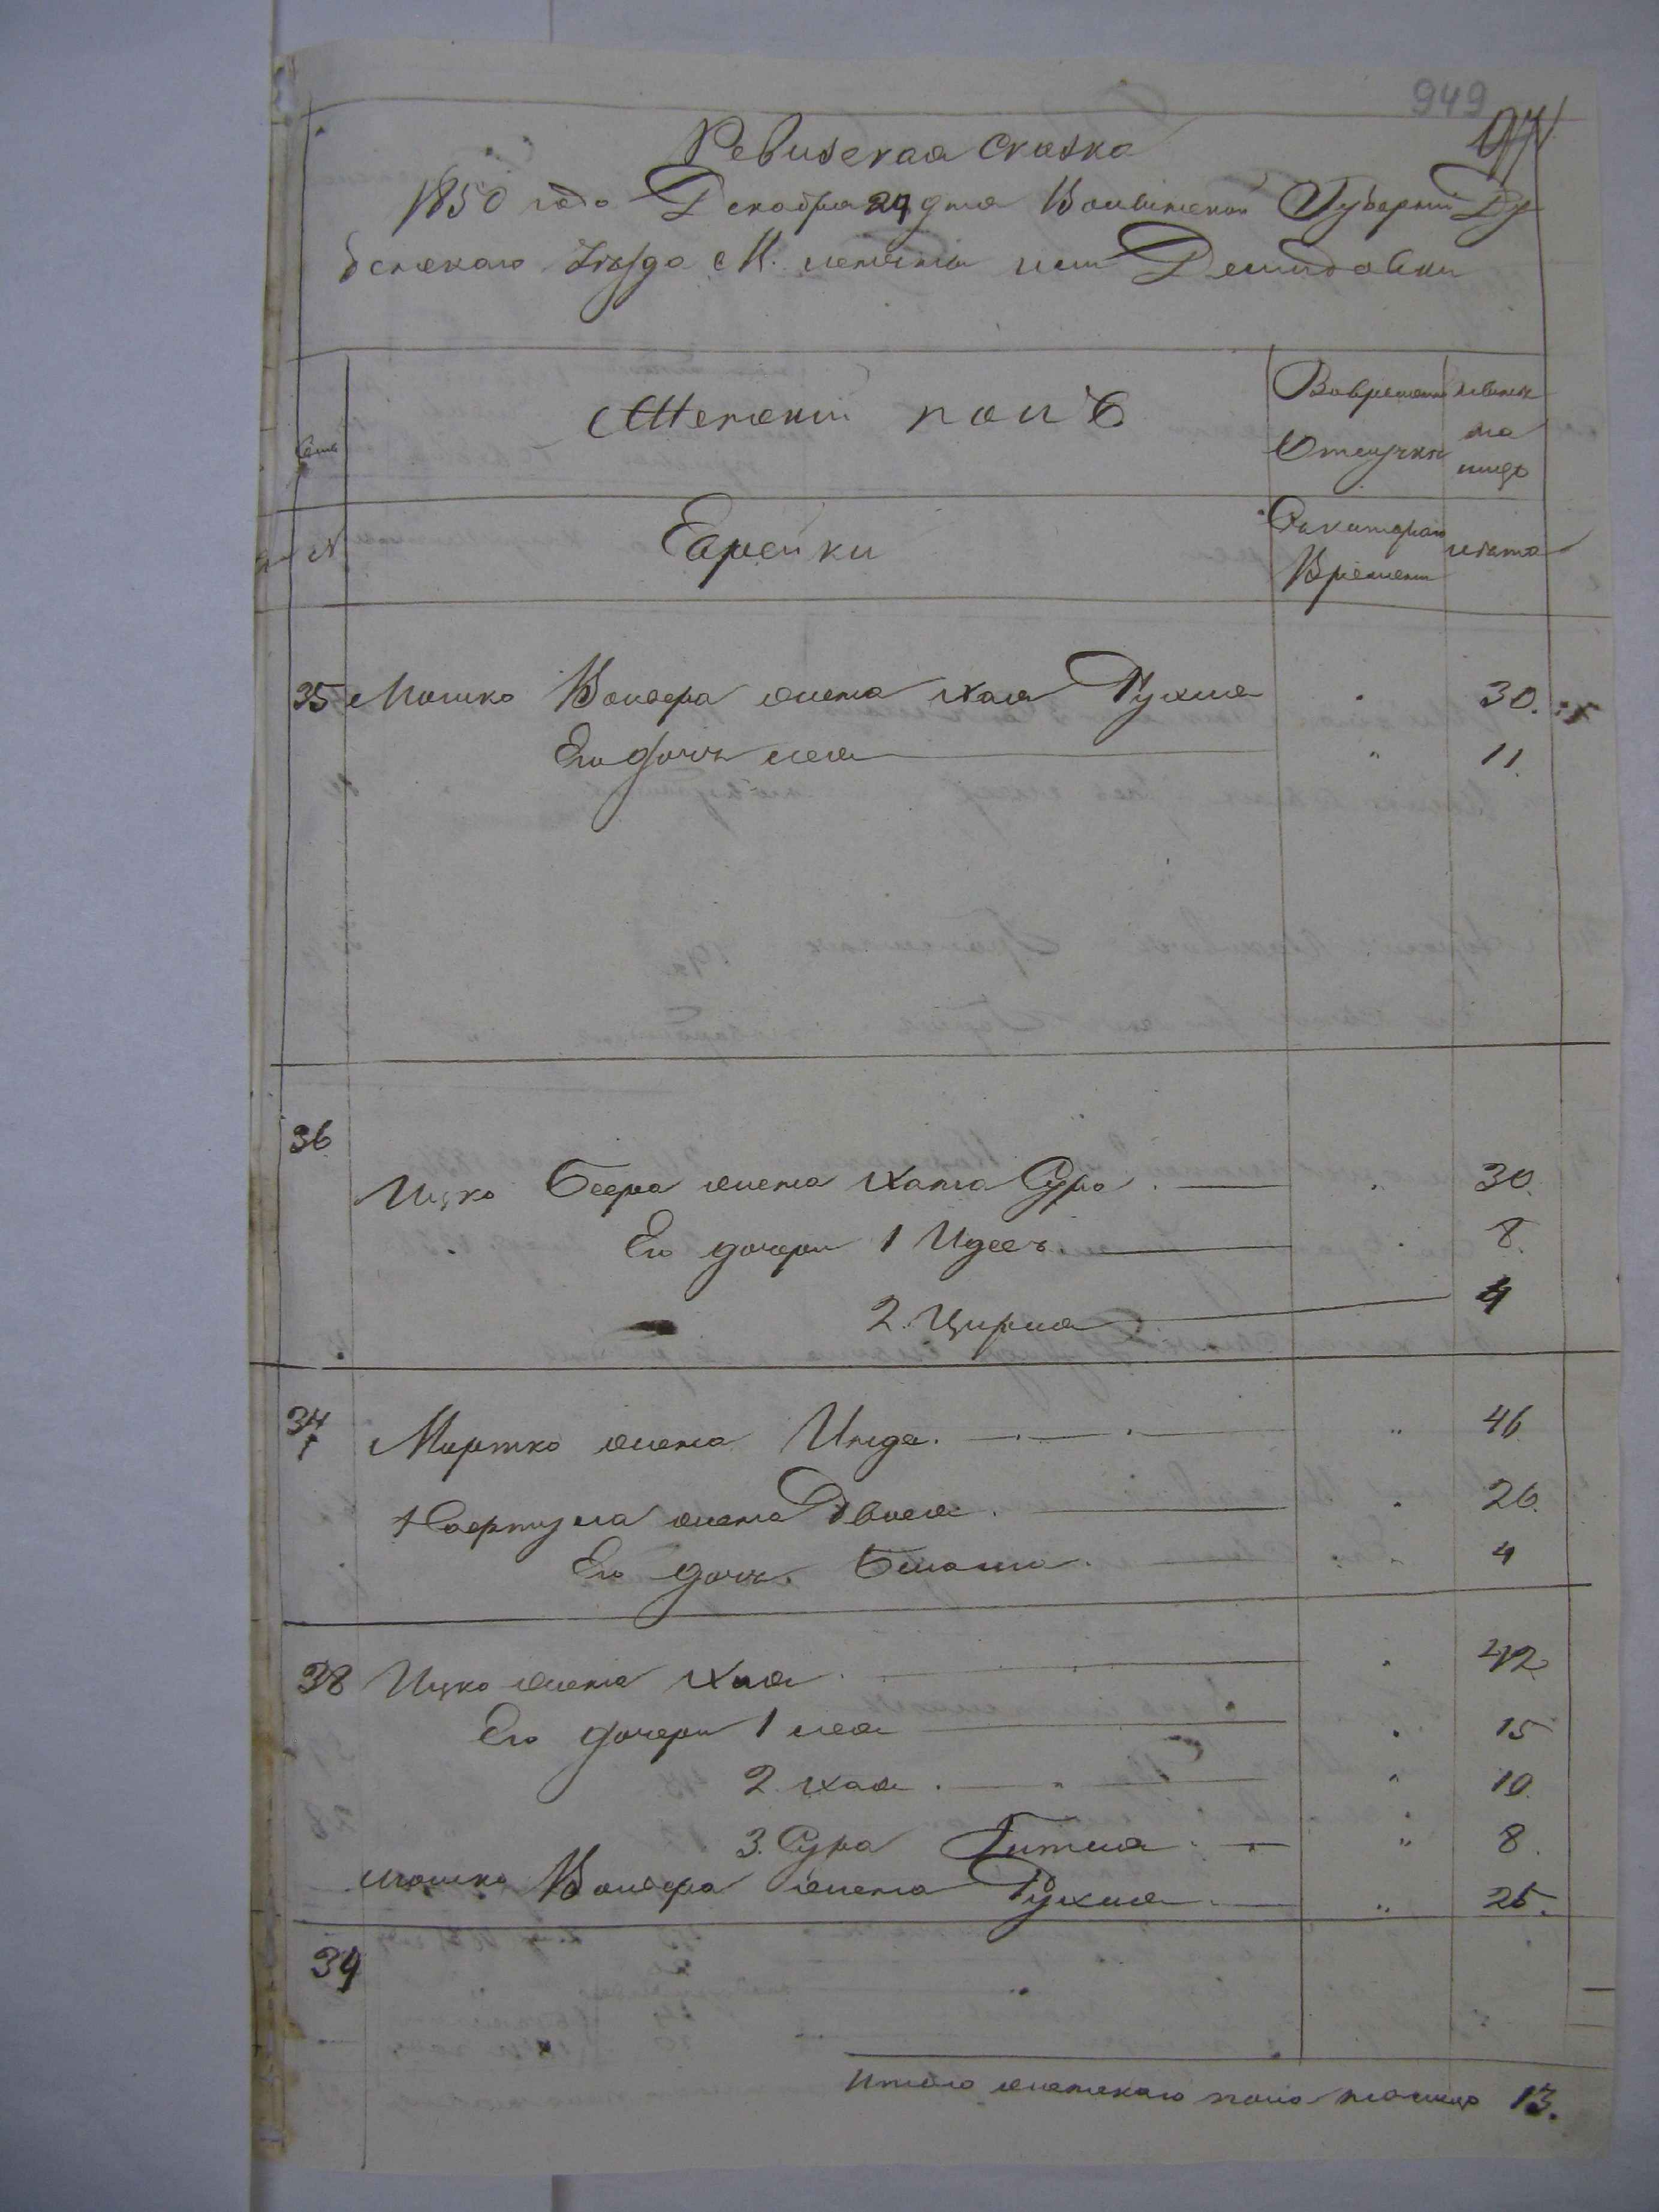 949
Ревизская сказка
1850 года Декабря 24 дня Волынской Губернии Ду
бенскаго уезда М.
Демидовки
Семьи
Женский полъ
Вовременной
отлучки
на
лицо
№
Еврейки
Съ котораго
Времени
лѣта
35 Мошко Вольфа жена Хая Рухля " 30.
Его дочь Лея " 11.
36
Ицко Беера жена Хана Сура " 30.
Его дочери 1 Идесъ " 8.
2. Цирля 4
37 Мортко жена Инда " 46
жена Двося " 26.
Его дочь Бташа " 4
38 Ицко жена Хая " 42
Его дочери 1 Лея " 15
2. Хая " 10.
3. Сура Гитля " 8.
Мошко Вольфа жена Рухля " 25.
39 "
Итого женскаго пола на лицо 13.